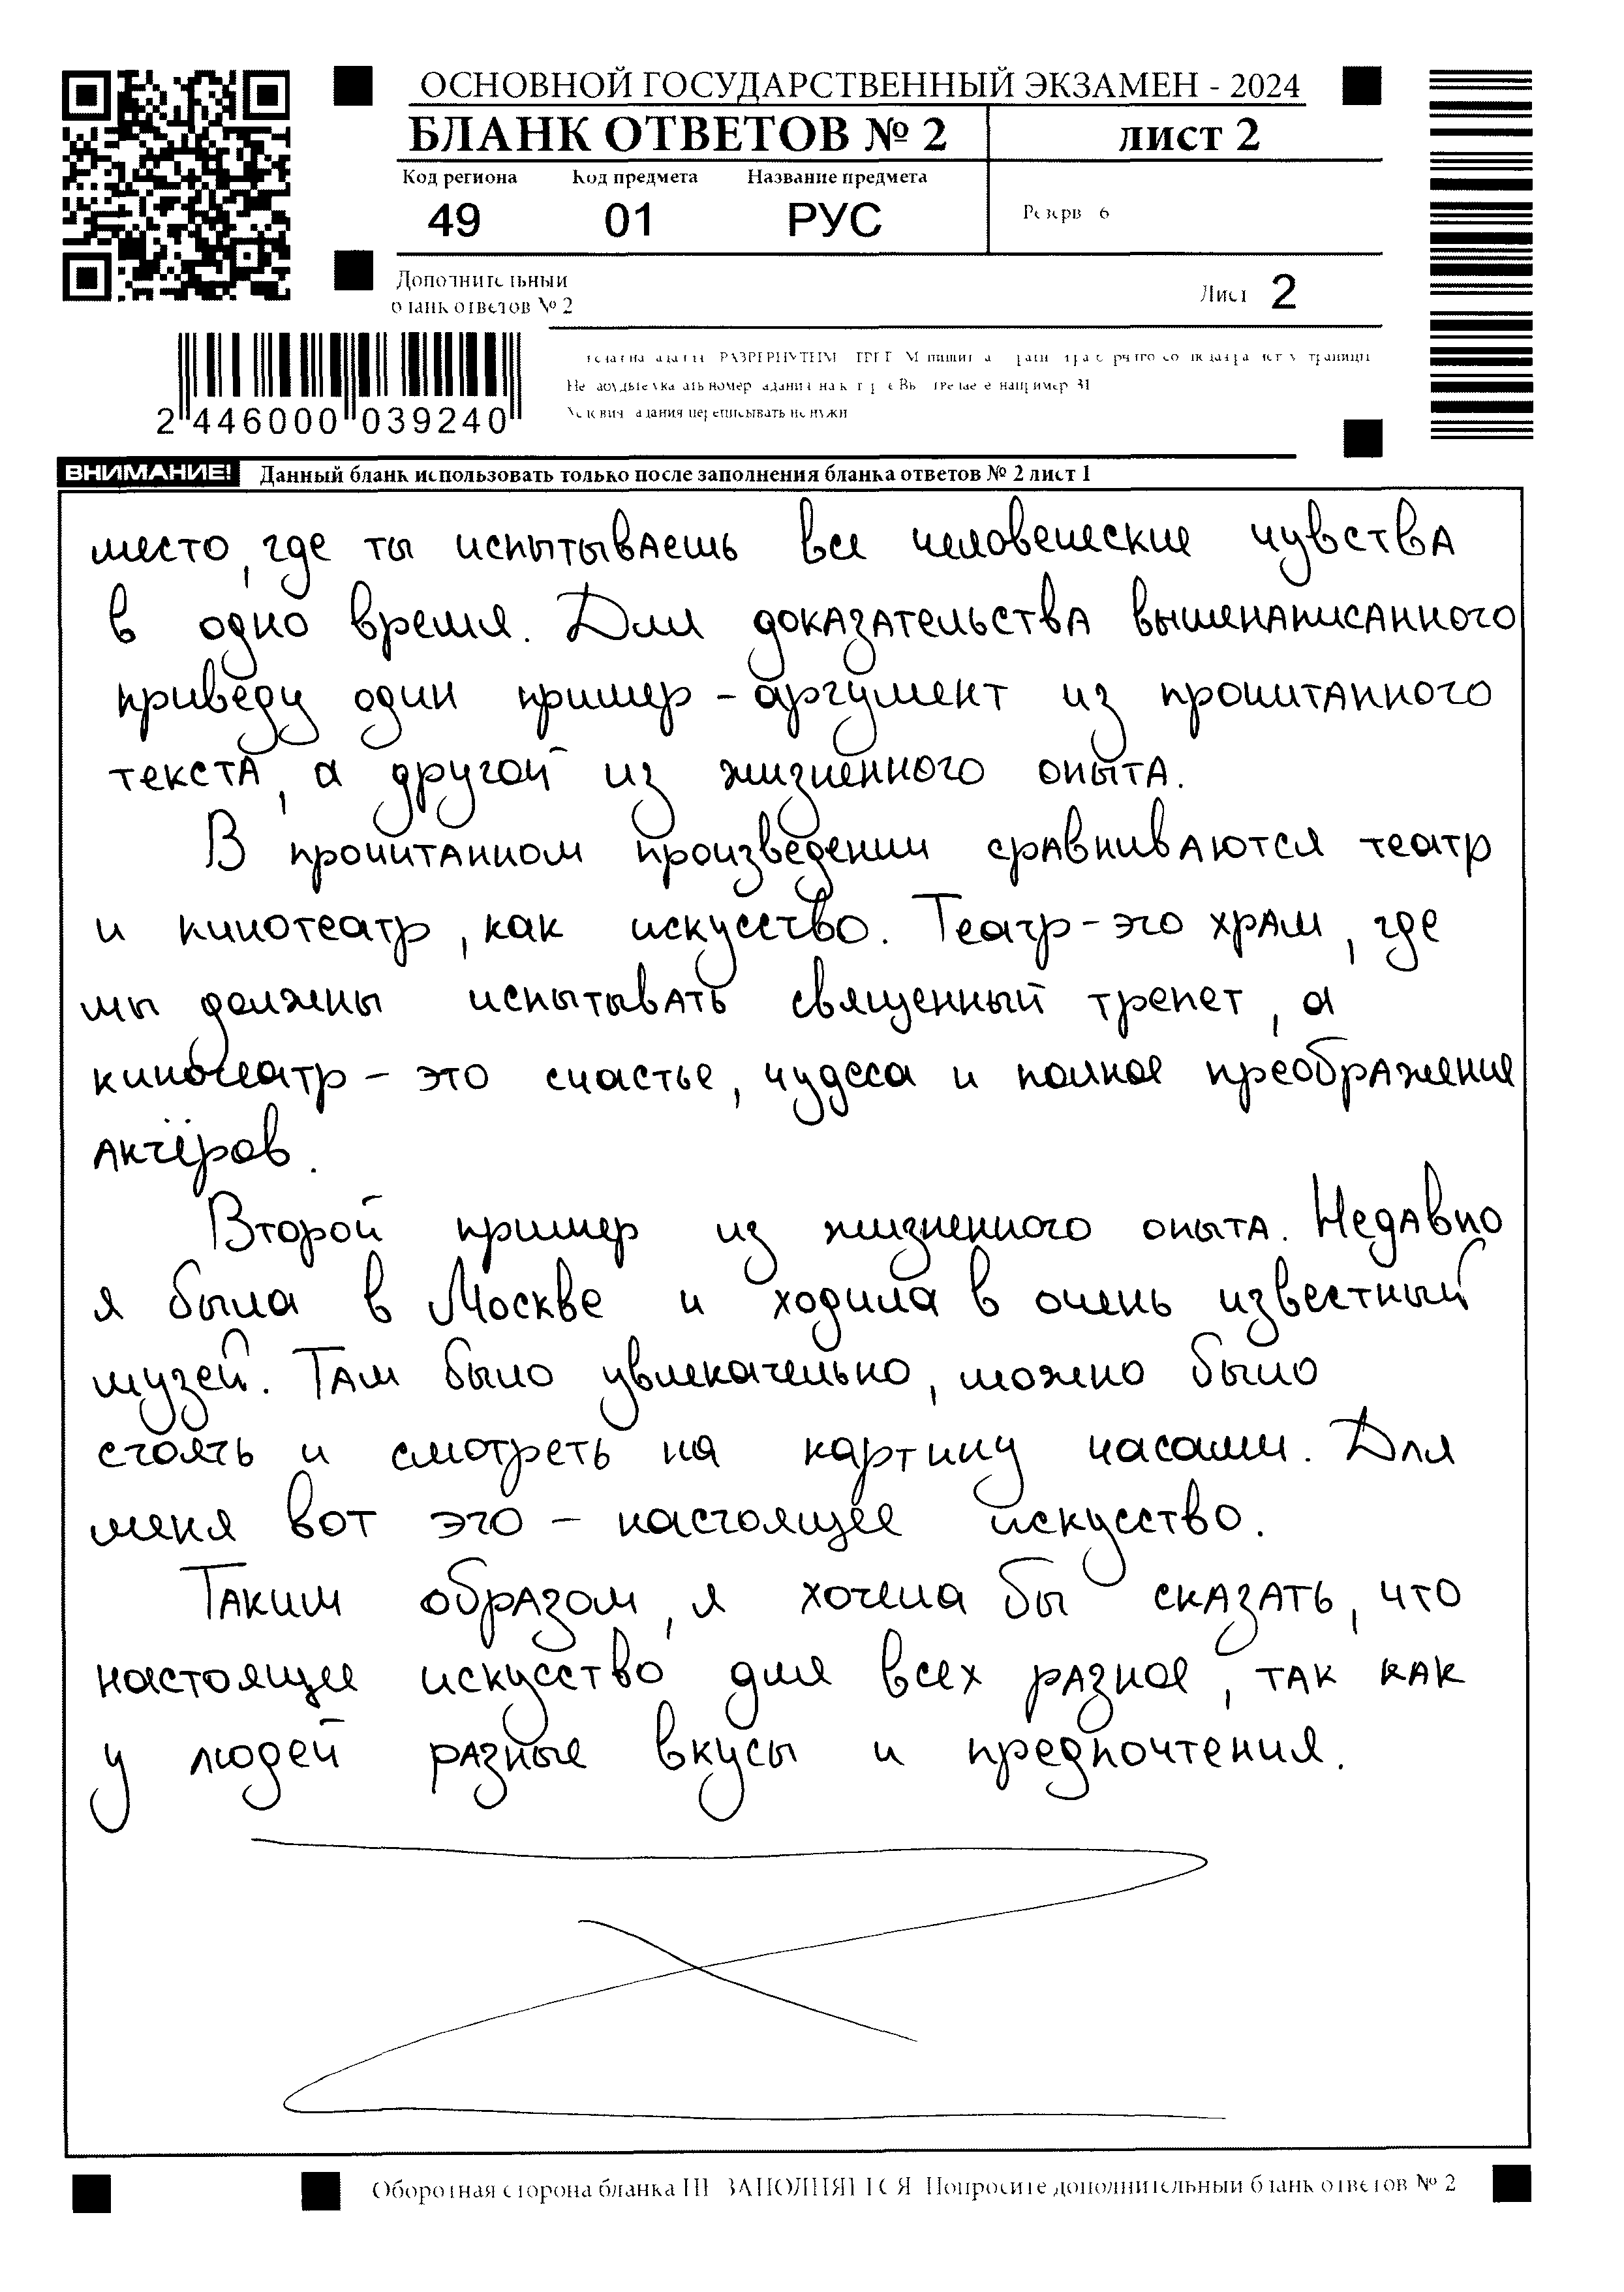 ОСНОВНОЙ ГОСУДАРСТВЕННЫЙ ЭКЗАМЕН - 2024
БЛАНК ОТВЕТОВ № 2
лист 2
Код региона Код предмета Название предмета
49 01 РУС
Резерв 6
Дополнительный
бланк ответов № 2
Лист 2
2 446000 039240
Условия задания переписывать не нужно
ВНИМАНИЕ! Данный бланк использовать только после заполнения бланка ответов № 2 лист 1
место, где ты испытываешь все человеческие чувства
в одно время. Для доказательства вышенаписанного
приведу один пример - аргумент из прочитанного
текста, а другой из жизненного опыта.
В прочитанном произведении сравниваются театр
и кинотеатр, как искусство. Театр - это храм, где
мы должны испытывать священный трепет, а
кинотеатр - это счастье, чудеса и полное преображение
актёров.
Второй пример из жизненного опыта. Недавно
я была в Москве и ходила в очень известный
музей. Там было увлекательно, можно было
стоять и смотреть на картину часами. Для
меня вот это - настоящее искусство.
Таким образом, я хотела бы сказать, что
настоящее искусство для всех разное, так как
у людей разные вкусы и предпочтения.
Оборотная сторона бланка НЕ ЗАПОЛНЯЕТСЯ Попросите дополнительный бланк ответов № 2